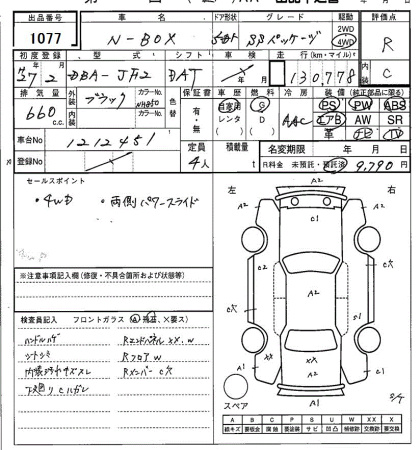 出品番号 車名 ドア形状 グレード 駆動 評価点
1077 N-BOX 5ドア SSパッケージ 2WD 4WD R
初度登録 型式 シフト 車検 走行(km・マイル) C
27/2 DBA-JF2 DAT 130,778
排気量 外装 内装 カラーNo. 色替 保証書 車歴 燃料 冷房 装備(純正部品に限る)
660 c.c. ブラック NH850 有・無 自家用 レンタ G D AAC PS PW ABS
エアB AW SR
革 ナビ TV
車台No 1212451 定員 積載量 名変期限 年 月 日
登録No 4人 t R料金 未預託・預託済 9,790円
セールスポイント
・4WD ・両側パワースライド
左 右
※注意事項記入欄(修復・不具合箇所および状態等)
検査員記入 フロントガラス(A 飛石、X要ス)
ハンドルハゲ Rエンドパネル XX、W
Rフロア W
Rメンバー C穴
下廻りCルガレ
A2
C1
A2 A2
C2 A2 C穴
A2 S1
XX XX C1
A2
A2
A1
スペア
A B C P S U W X XX
線キズ 要板金 腐蝕 要塗装 サビ 凹凸 補修跡 要交換 交換済